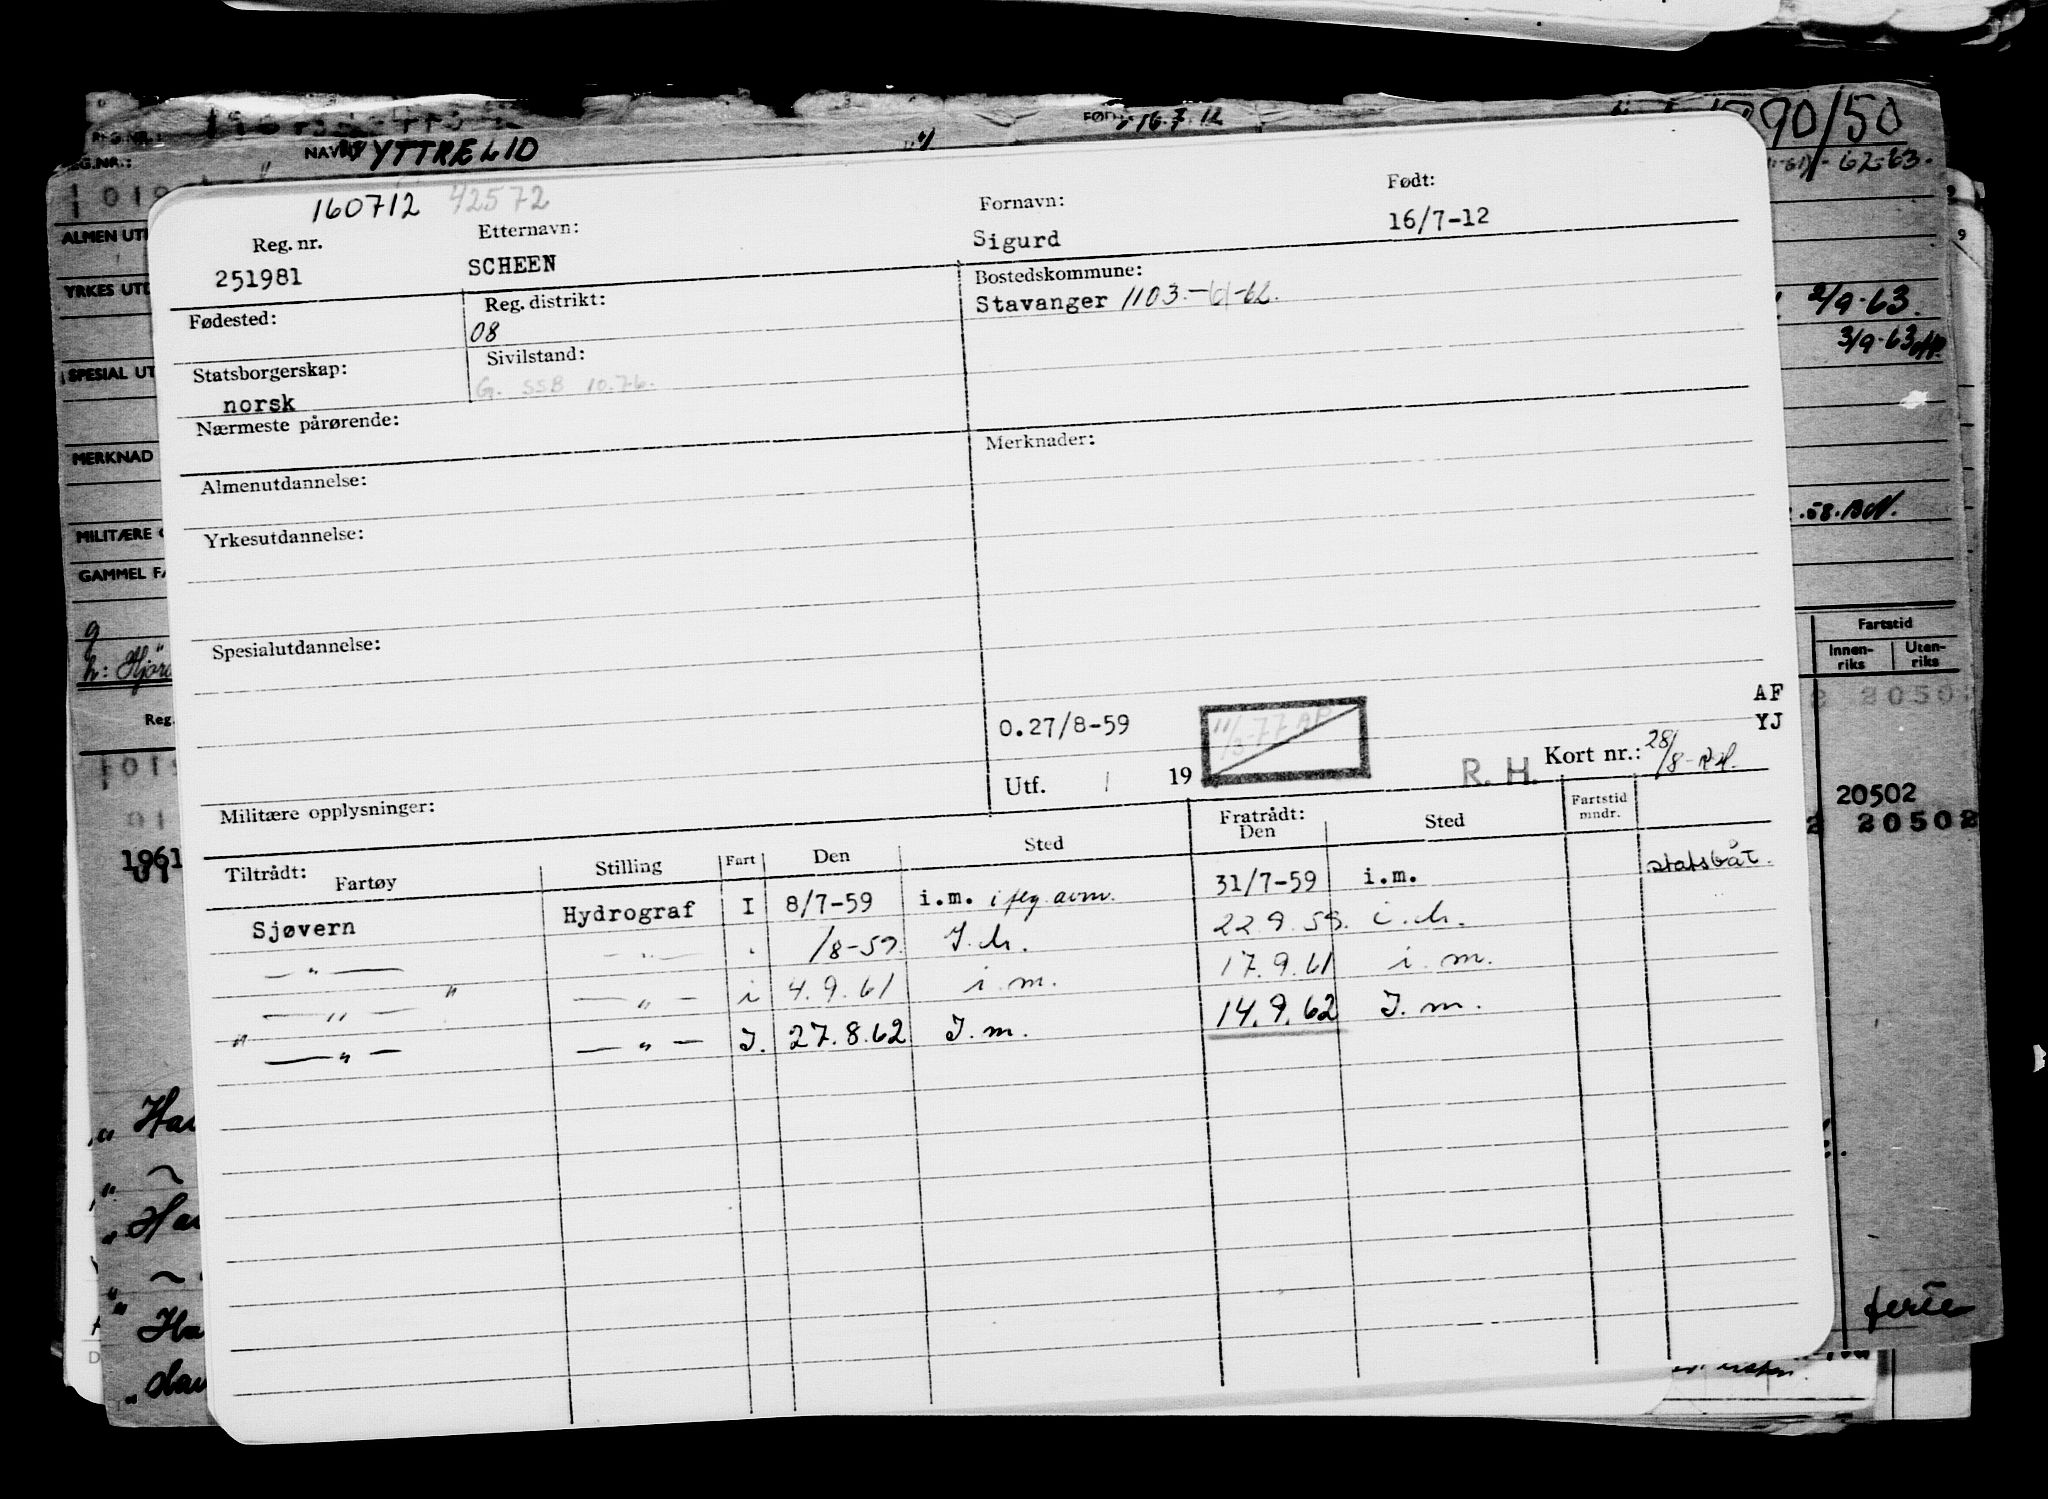 FØDT 16.7.12
REG.NR.: NAVN YTTRELID 90/50
62-63.
160712 42572 Fornavn: Født:
Reg. nr. Etternavn: Sigurd 16/7-12
251981 SCHEEN
Fødested: Reg. distrikt: Bostedskommune:
08 Stavanger 1103.-61-62.
Statsborgerskap: Sivilstand:
norsk G. SSB 10.76.
Nærmeste pårørende: Merknader:
Almenutdannelse:
Yrkesutdannelse:
Spesialutdannelse:
AF
O.27/8-59 11/3-77 AP YJ
Utf. / 19 R. H. Kort nr.: 28/8-RH.
Militære opplysninger:
Tiltrådt: Fratrådt:
Fartøy Stilling Fart Den Sted Den Sted Fartstid mndr.
Sjøvern Hydrograf I 8/7-59 i.m. 31/7-59 i.m. statsbåt.
—"— —"— " /8-59. I.m. 22.9.59. i.m.
—"— " —"— i 4.9.61 i.m. 17.9.61 i.m.
" —"— —"— I. 27.8.62 I.m. 14.9.62 I.m.
ALMEN UT
YRKES UTD
SPESIAL UT
MERKNAD
MILITÆRE
GAMMEL FA
g
h: Hjör
Reg.
1961
2/9-63.
3/9-63
.58.
Fartstid
Innen-riks Uten-riks
20502
20502
20502
ferie